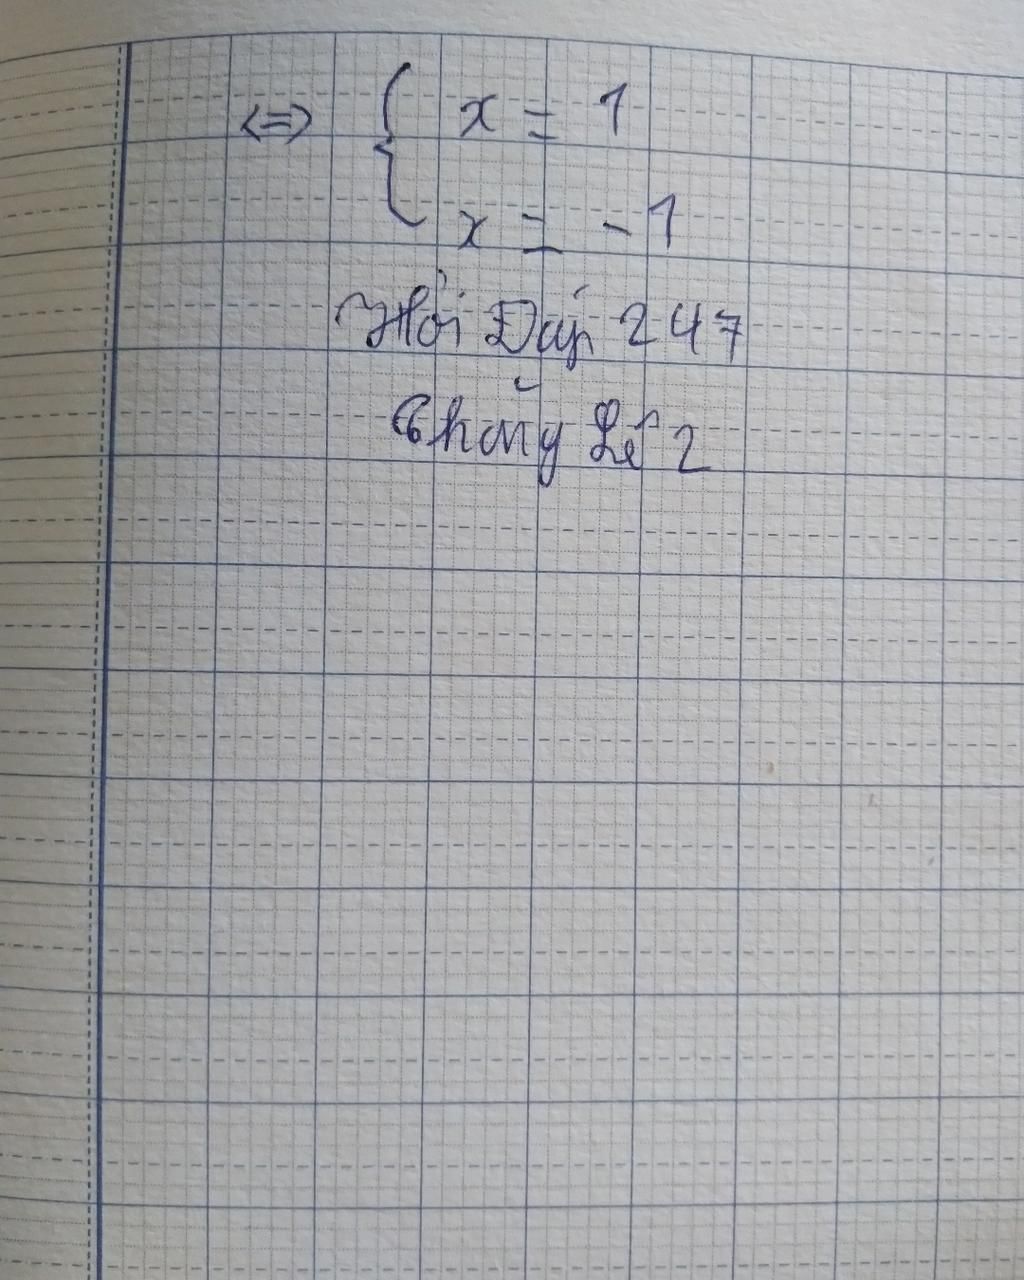 <=> { x = 1
x = -1
Hỏi Đáp 247
Thắng Lê 2